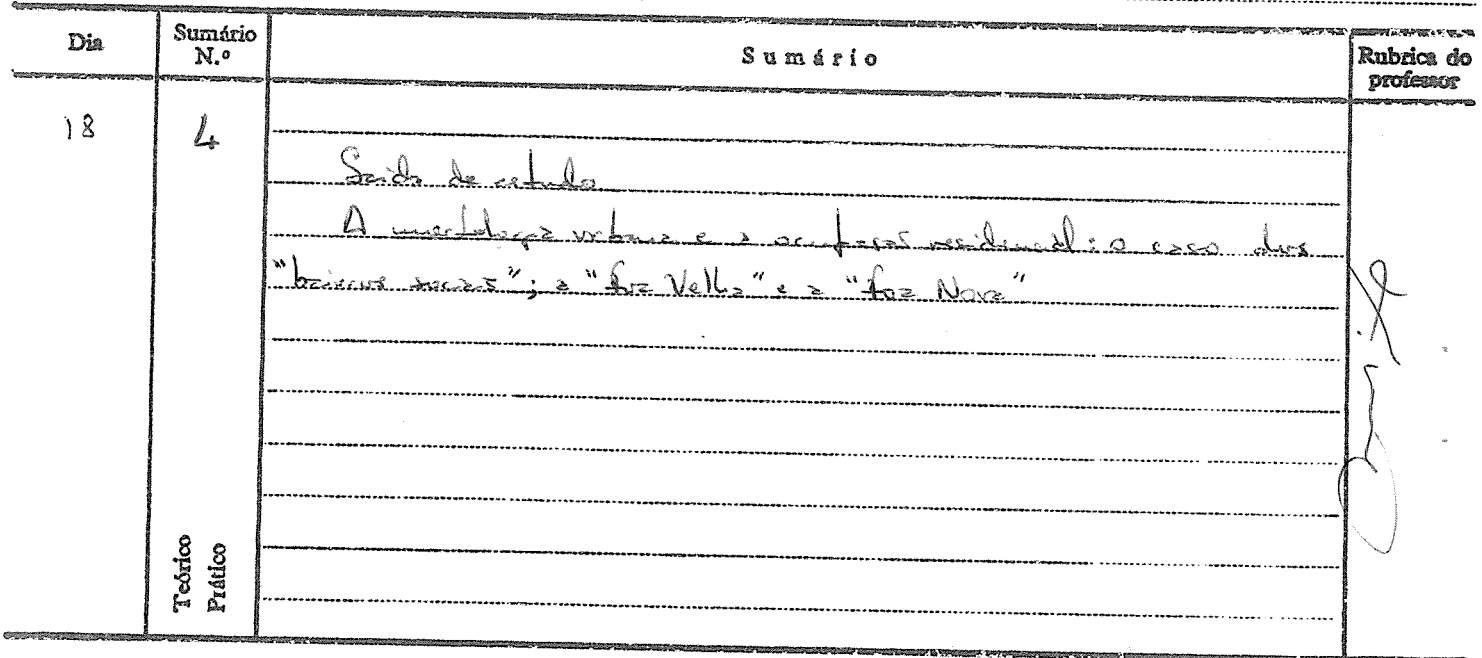 Dia
Sumário N.º
Sumário
Rubrica do professor
18
4
Saída de estudo
A morfologia urbana e a ocupação residencial: o caso dos
"bairros sociais"; a "Foz Velha" e a "Foz Nova"
Teórico
Prático